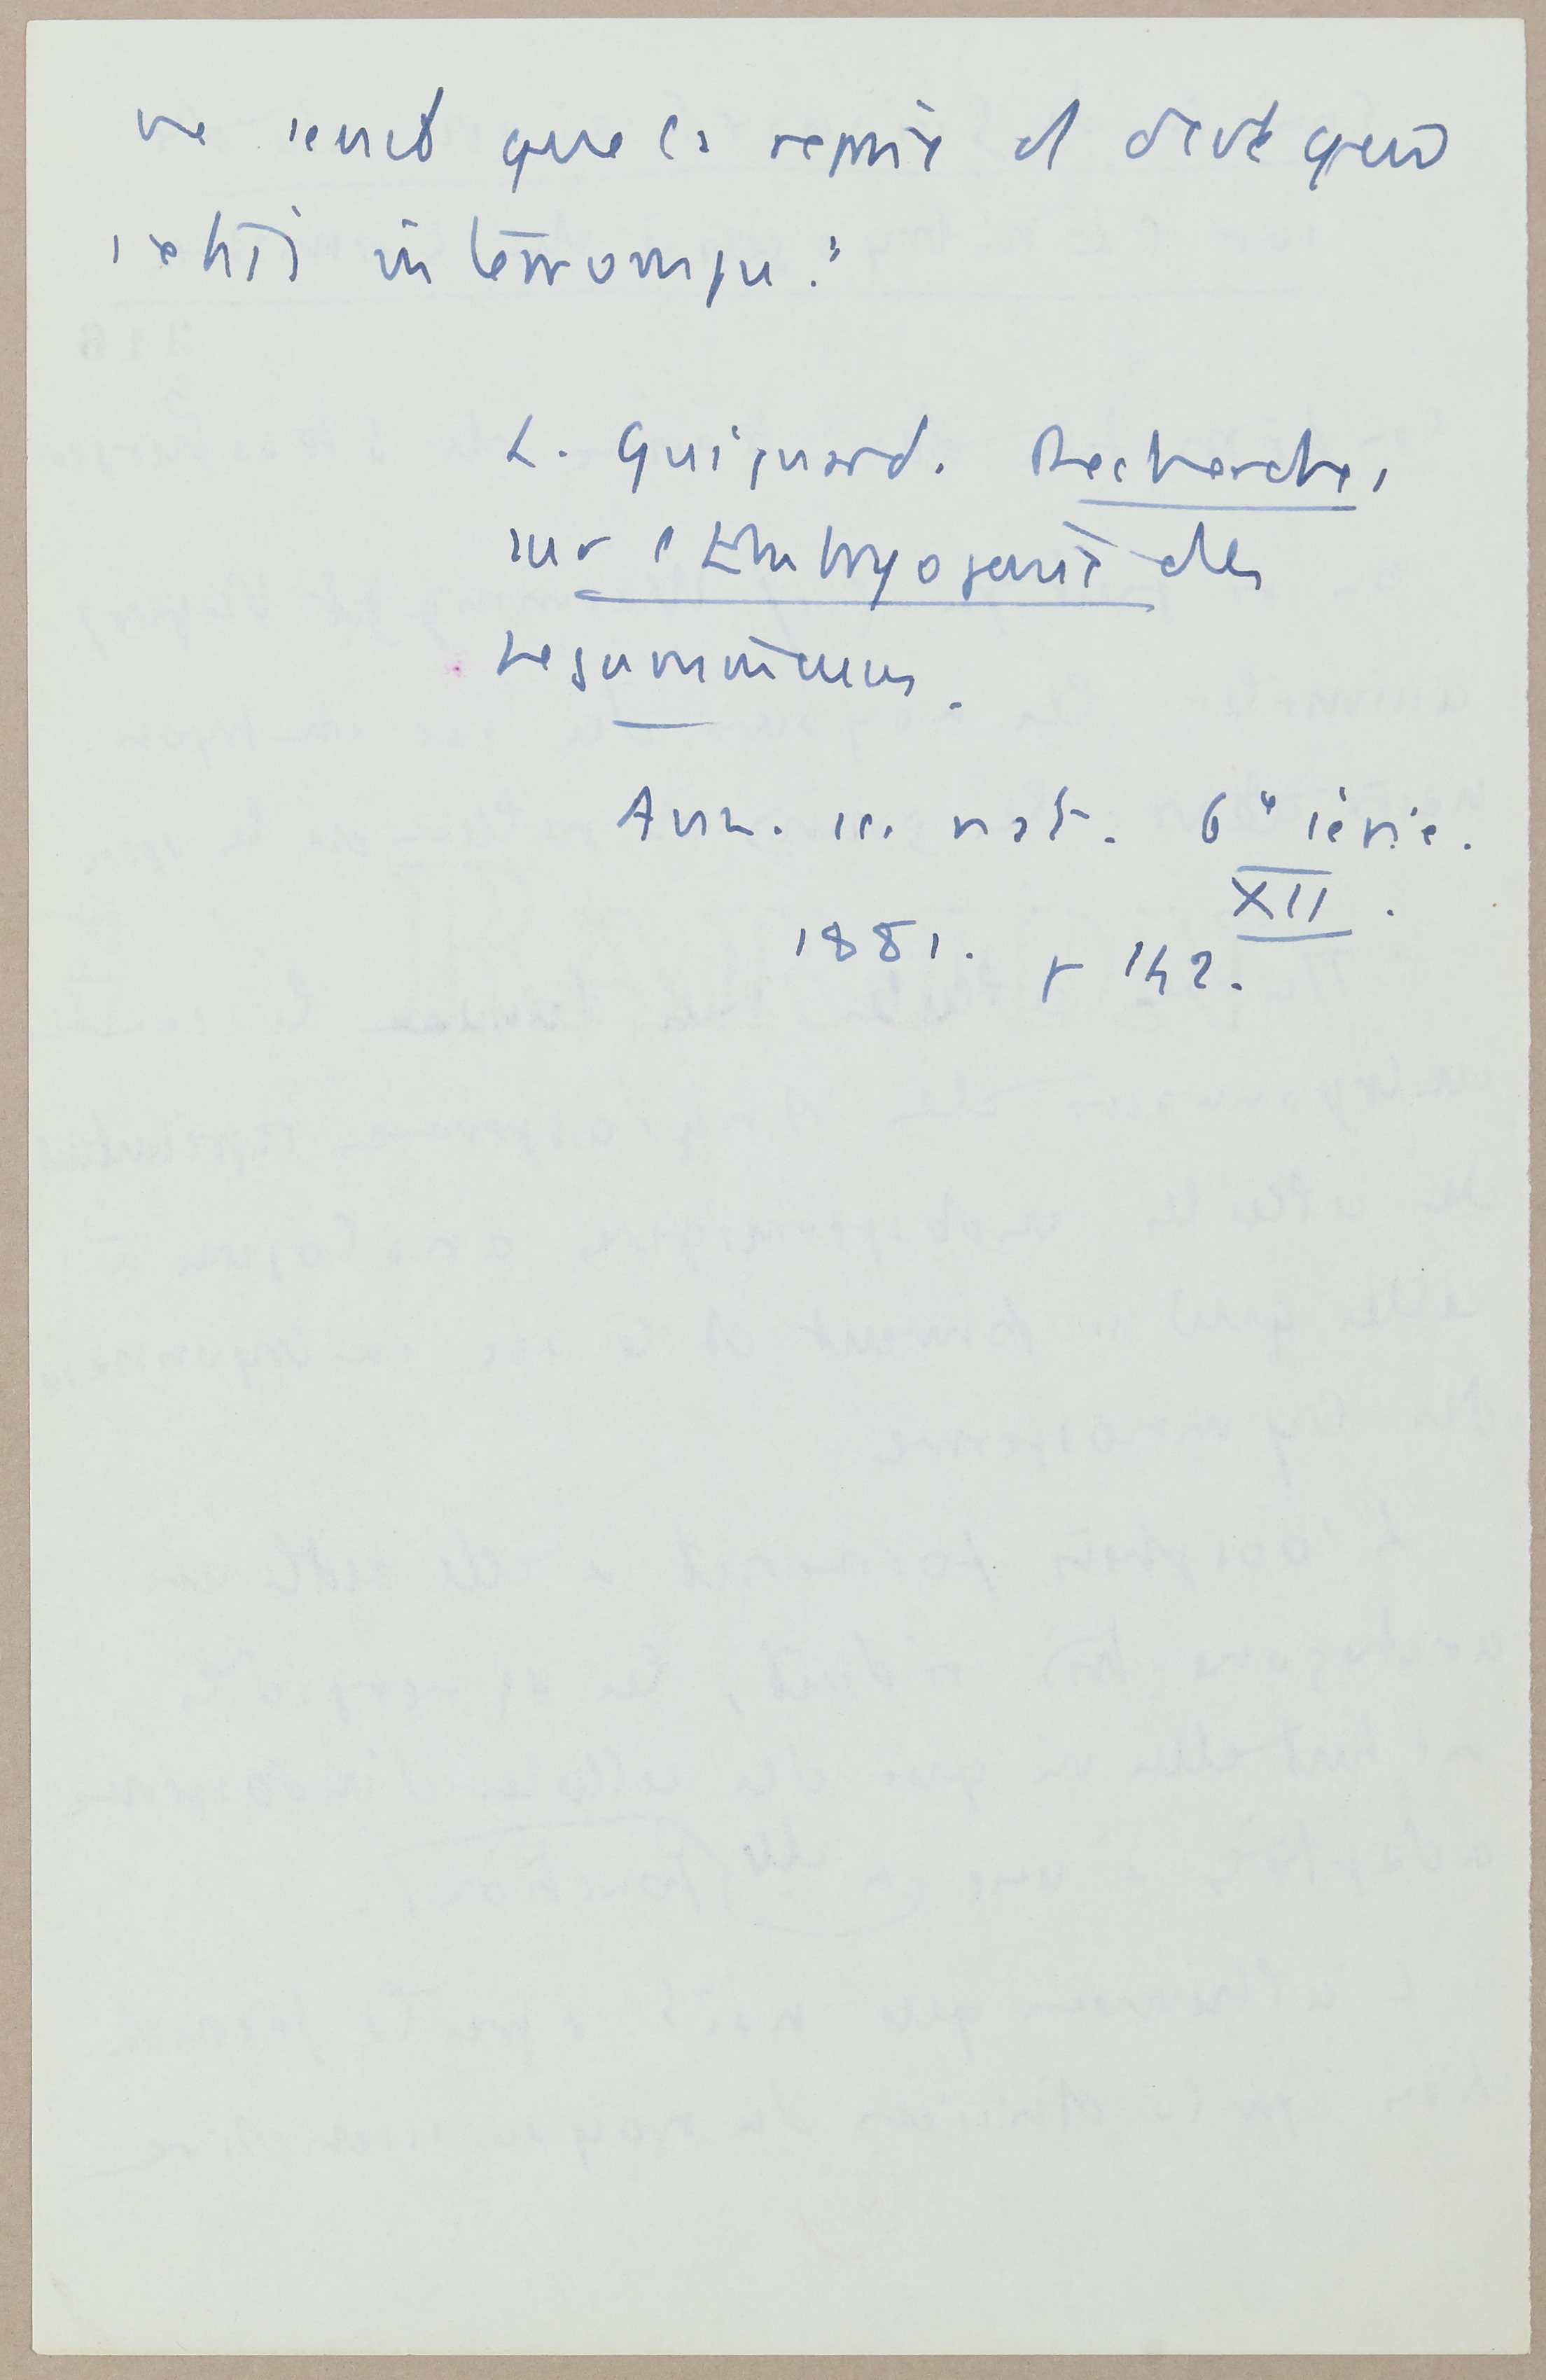 ne serait que la reprise et
interrompu."
L. Guignard. Recherches
sur l'Embryogénie des
Légumineuses.
Ann. sc. nat. 6e série.
XII.
1881. p 142.